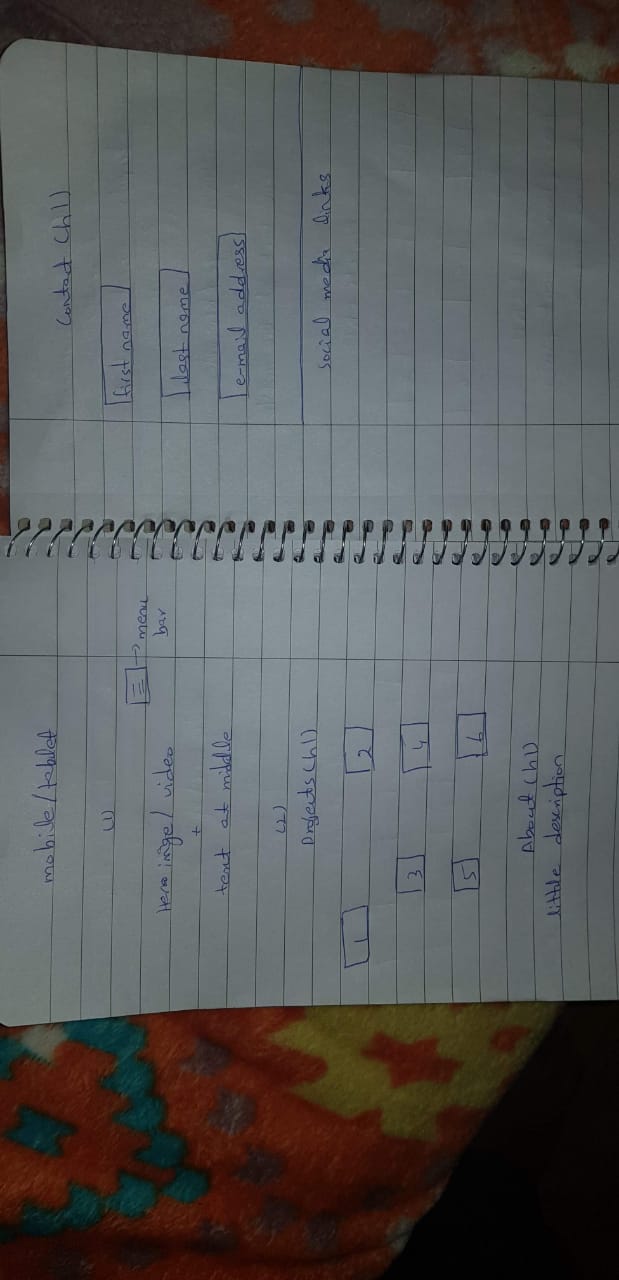 mobile/tablet
(1)
☰ → menu
bar
Hero imge / video
+
text at middle
(2)
Projects (h1)
1 2
3 4
5 6
About (h1)
little description
Contact (h1)
first name
last name
e-mail address
social media links